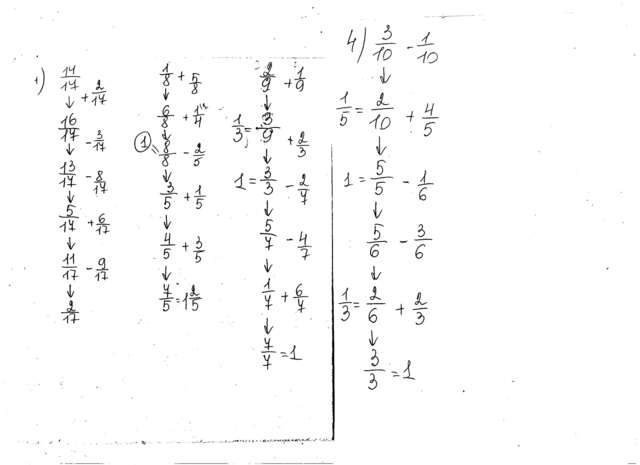 1) 14/17 + 2/17
↓
16/17 - 3/17
↓
13/17 - 8/17
↓
5/17 + 6/17
↓
11/17 - 9/17
↓
2/17
1/8 + 5/8
↓
6/8 + 1/4
↓
1 8/8 - 2/5
↓
3/5 + 1/5
↓
4/5 + 3/5
↓
7/5 = 1 2/5
2/9 + 1/9
↓
1/3 = 3/9 + 2/3
↓
1 = 3/3 - 2/7
↓
5/7 - 4/7
↓
1/7 + 6/7
↓
7/7 = 1
4) 3/10 - 1/10
↓
1/5 = 2/10 + 4/5
↓
1 = 5/5 - 1/6
↓
5/6 - 3/6
↓
1/3 = 2/6 + 2/3
↓
3/3 = 1